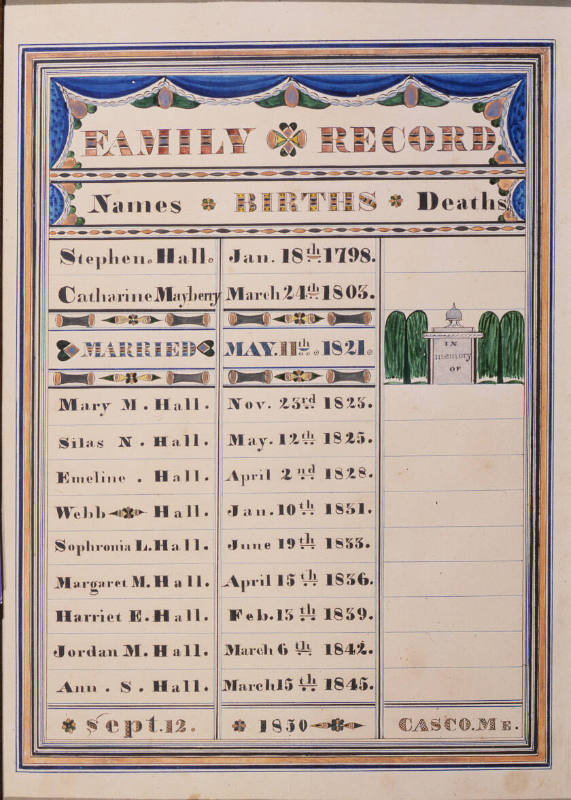 FAMILY RECORD
Names BIRTHS Deaths
Stephen. Hall. Jan. 18th 1798.
Catharine Mayberry March 24th 1803.
MARRIED MAY. 11th 1821.
IN
memory
OF
Mary M. Hall. Nov. 23rd 1823.
Silas N. Hall. May. 12th 1825.
Emeline. Hall. April 2nd 1828.
Webb Hall. Jan. 10th 1831.
Sophronia L. Hall. June 19th 1833.
Margaret M. Hall. April 15th 1836.
Harriet E. Hall. Feb. 13th 1839.
Jordan M. Hall. March 6th 1842.
Ann. S. Hall. March 15th 1845.
Sept. 12. 1850 CASCO. ME.